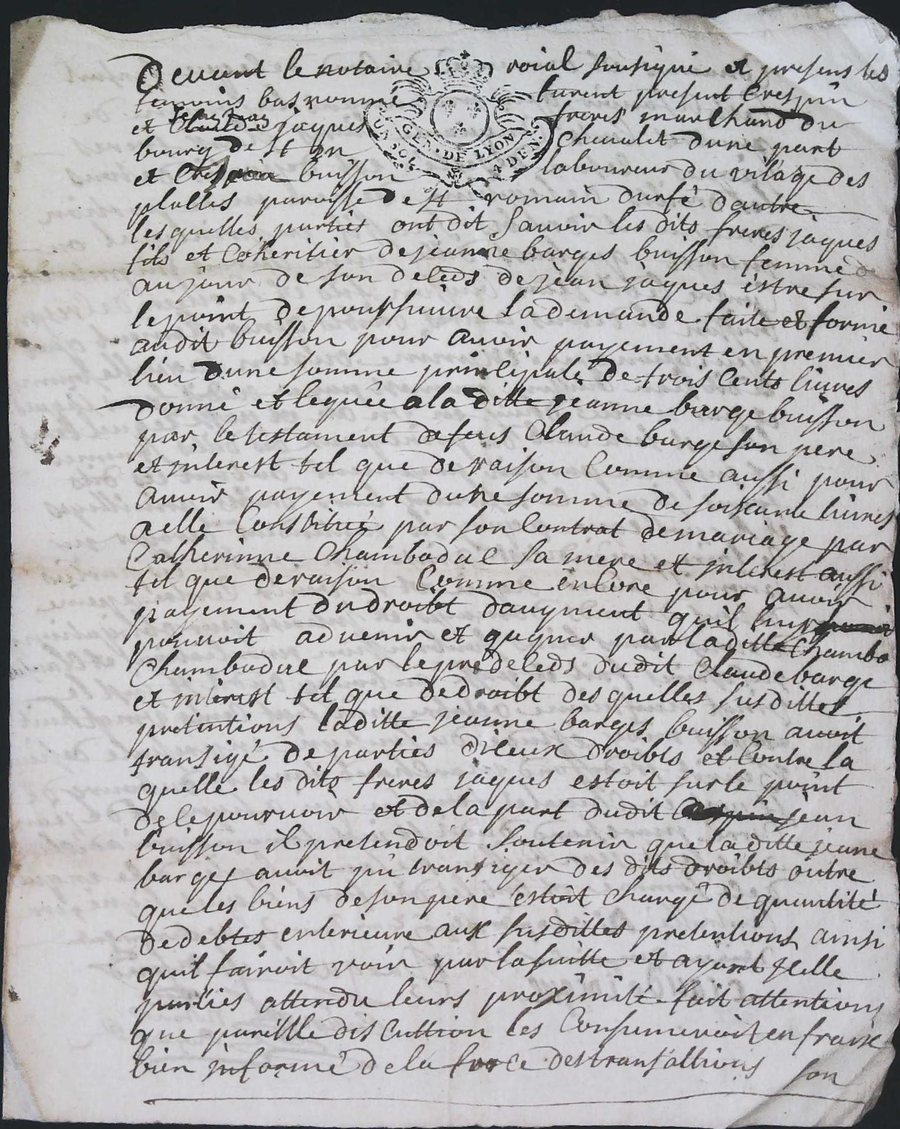 Devant le notaire roial sousigné et presens les
temoins bas nommé furent present Crespin
et Claude jaques freres marchand du
bourg de St chaulet dune part
et buisson laboureur du vilage des
plalles paroisse de St romain durfé dautre
lesquelles parties ont dit sauoir les dits freres jaques
fils et coheritier de jeanne barges buisson femme
au jour de son deleds de jean jaques estre sur
le point de poursuiure la demande faite et formé
audit buisson pour auoir payement en premier
lieu dune somme principale de trois cents liures
donné et leguée a la ditte jeanne barge buisson
par le testament de feus Claude barge son pere
et interest tel que de raison Comme aussi pour
auoir payement dune somme de soisante liures
a elle Constituée par son Contrat de mariage par
Catherinne Chambodut sa mere et interest aussi
tel que de raison Comme encore pour auoir
payement du droibt daugment quil
pouuoit aduenir et gagner par laditte Chambo
Chambodut par le predeleds dudit Claude barge
et interest tel que de droibt des quelles susdittes
pretentions laditte jeanne barges buisson auoit
transigé de parties diceux droibts et Contre la
quelle les dits freres jaques estoit sur le point
de le pouruoir et de la part dudit jean
buisson il pretendoit soutenir que laditte jeane
barges auoit pu transiger des dits droibts outre
que les biens de son pere estoit Chargé de quantité
de debtes enterieure aux susdittes pretentions ainsi
quil fairoit voir par la suitte et ayant jcelle
parties attendu leurs proximité fait attentions
que pareille discuttion les Consumeroit en fraix
bien informé de la force des transaltions son
GEN. DE LYON